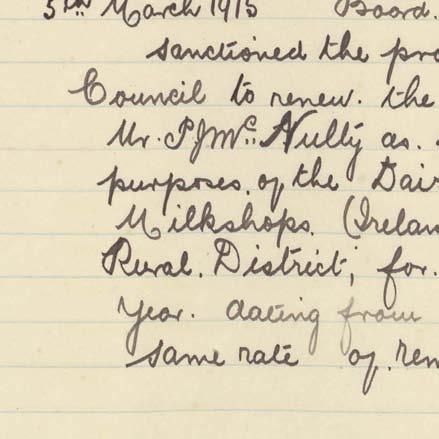 5th March 1915 Board.
sanctioned the pro
Council to renew. the
Mr. P.J. McNully as.
purposes. of the Dair
Milkshops. (Irelan
Rural. District, for.
year. dating from
same rate of. rem